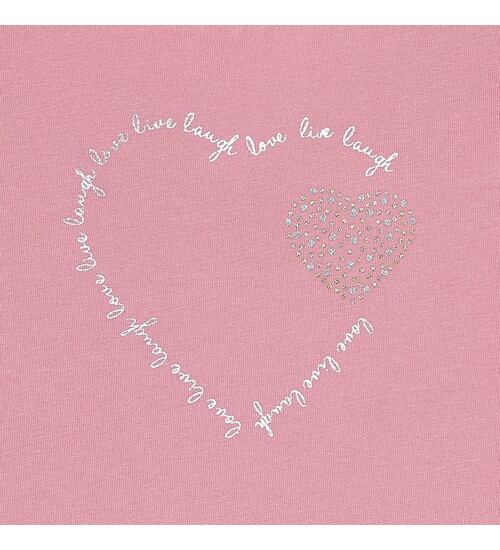 love live laugh love live laugh love live laugh love live laugh love
love live laugh